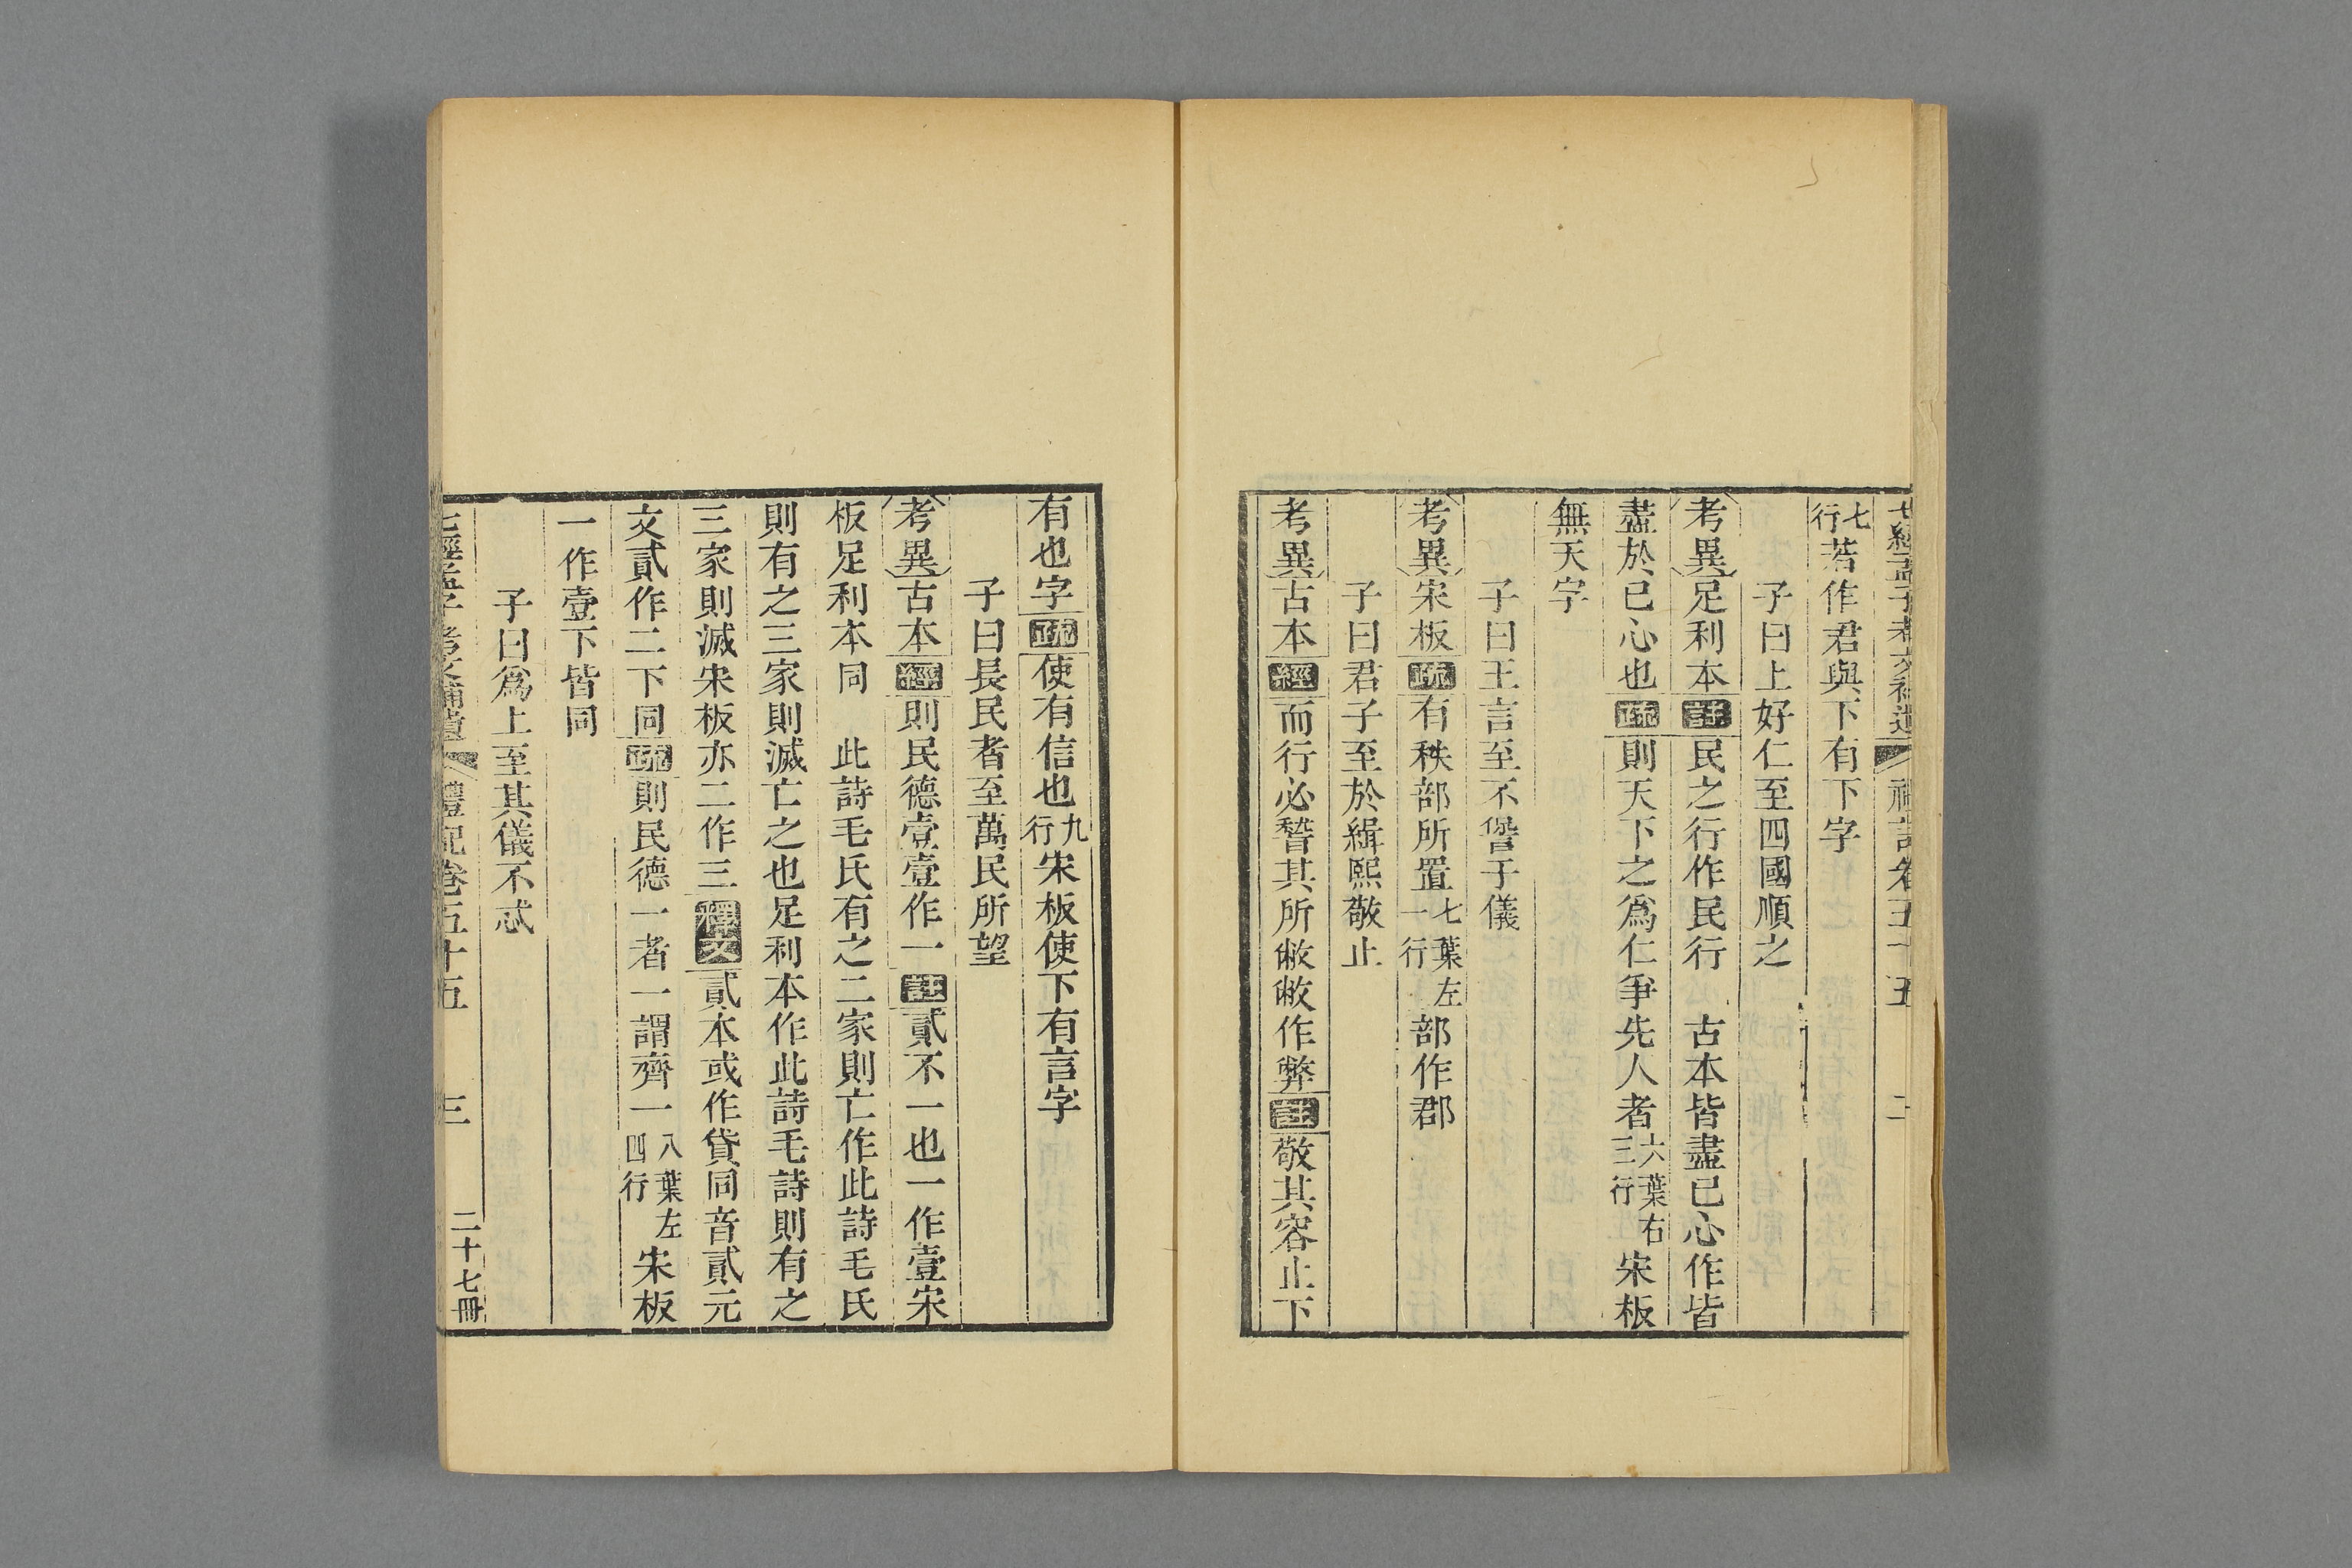 七經孟子考文補遺 禮記卷五十五 二
七行若作君與下有下字
子曰上好仁至四國順之
考異足利本註民之行作民行 古本皆盡已心作皆
盡於已心也疏則天下之爲仁爭先人者六葉右三行宋板
無天字
子曰王言至不諐于儀
考異宋板疏有秩部所置七葉左一行部作郡
子曰君子至於緝熙敬止
考異古本經而行必稽其所敝敝作弊註敬其容止下
有也字疏使有信也九行宋板使下有言字
子曰長民者至萬民所望
考異古本經則民德壹壹作一註貳不一也一作壹宋
板足利本同 此詩毛氏有之二家則亡作此詩毛氏
則有之三家則滅亡之也足利本作此詩毛詩則有之
三家則滅宋板亦二作三釋文貳本或作貸同音貳元
文貳作二下同疏則民德一者一謂齊一八葉左四行宋板
一作壹下皆同
子曰爲上至其儀不忒
七經孟子考文補遺 禮記卷五十五 三 二十七冊